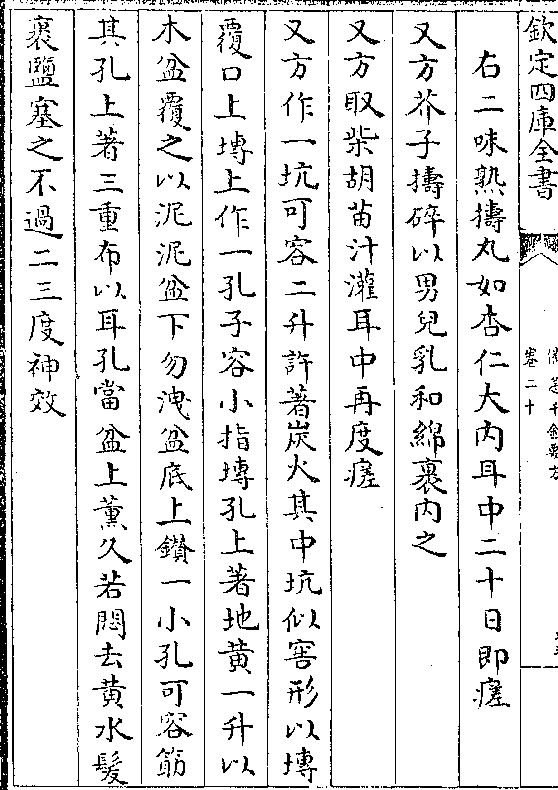 欽定四庫全書
卷二十
右二味熟擣丸如杏仁大內耳中二十日即瘥
又方芥子擣碎以男兒乳和綿裹內之
又方取柴胡苗汁灌耳中再度瘥
又方作一坑可容二升許著炭火其中坑似窖形以塼
覆口上塼上作一孔子容小指塼孔上著地黃一升以
木盆覆之以泥泥盆下勿洩盆底上鑽一小孔可容筯
其孔上著三重布以耳孔當盆上薰久若悶去黃水髮
裹鹽塞之不過二三度神效